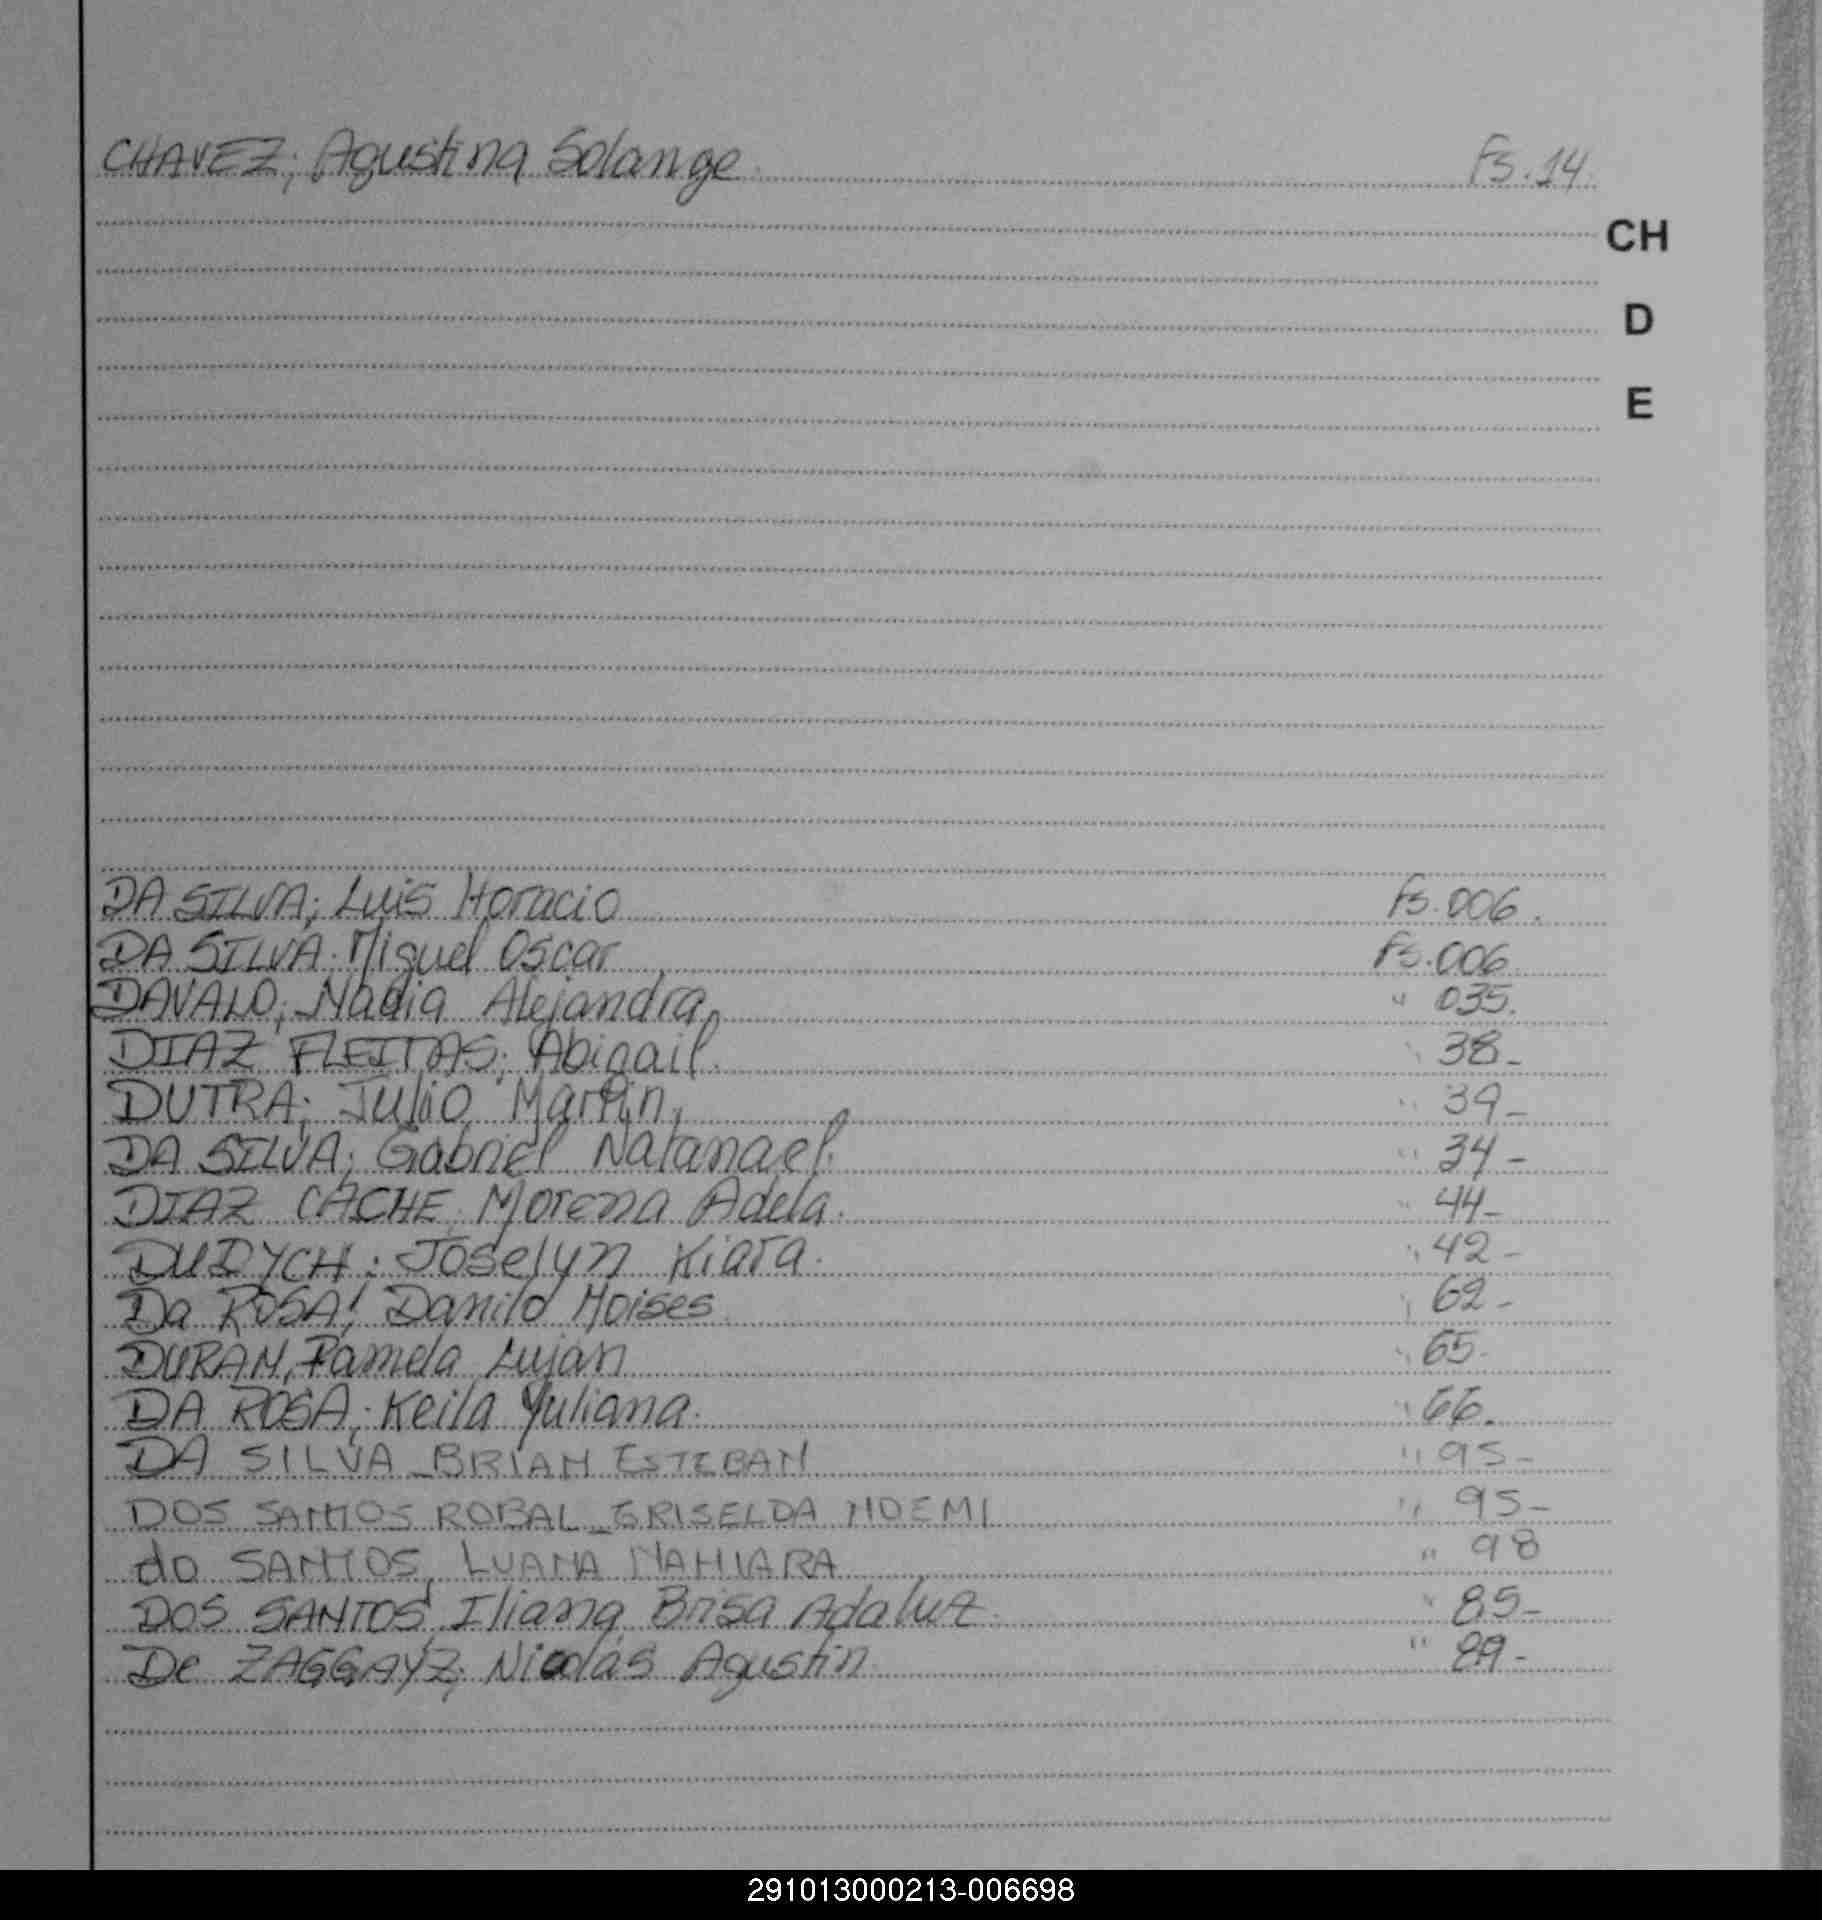 CHAVEZ; Agustina Solange. Fs. 14.
CH
D
E
DA SILVA; Luis Horacio Fs. 006.
DA SILVA. Miguel Oscar Fs. 006
DAVALO; Nadia Alejandra " 035.
DIAZ FLEITAS; Abigail. " 38-
DUTRA; Julio Martin, " 39-
DA SILVA; Gabriel Natanael. " 34-
DIAZ CACHE; Morena Adela. " 44-
DUDYCH; Joselyn Kiara. " 42-
Da ROSA; Danilo Moises " 62-
DURAN, Pamela Lujan " 65-
DA ROSA; Keila Yuliana. " 66.
DA SILVA - BRIAN ESTEBAN " 95-
DOS SANTOS ROBAL - GRISELDA NOEMI " 95-
do SANTOS, LUANA NAHIARA " 98
DOS SANTOS, Iliana Brisa Adaluz. " 85-
De ZAGGAYZ; Nicolás Agustin. " 89-
291013000213-006698